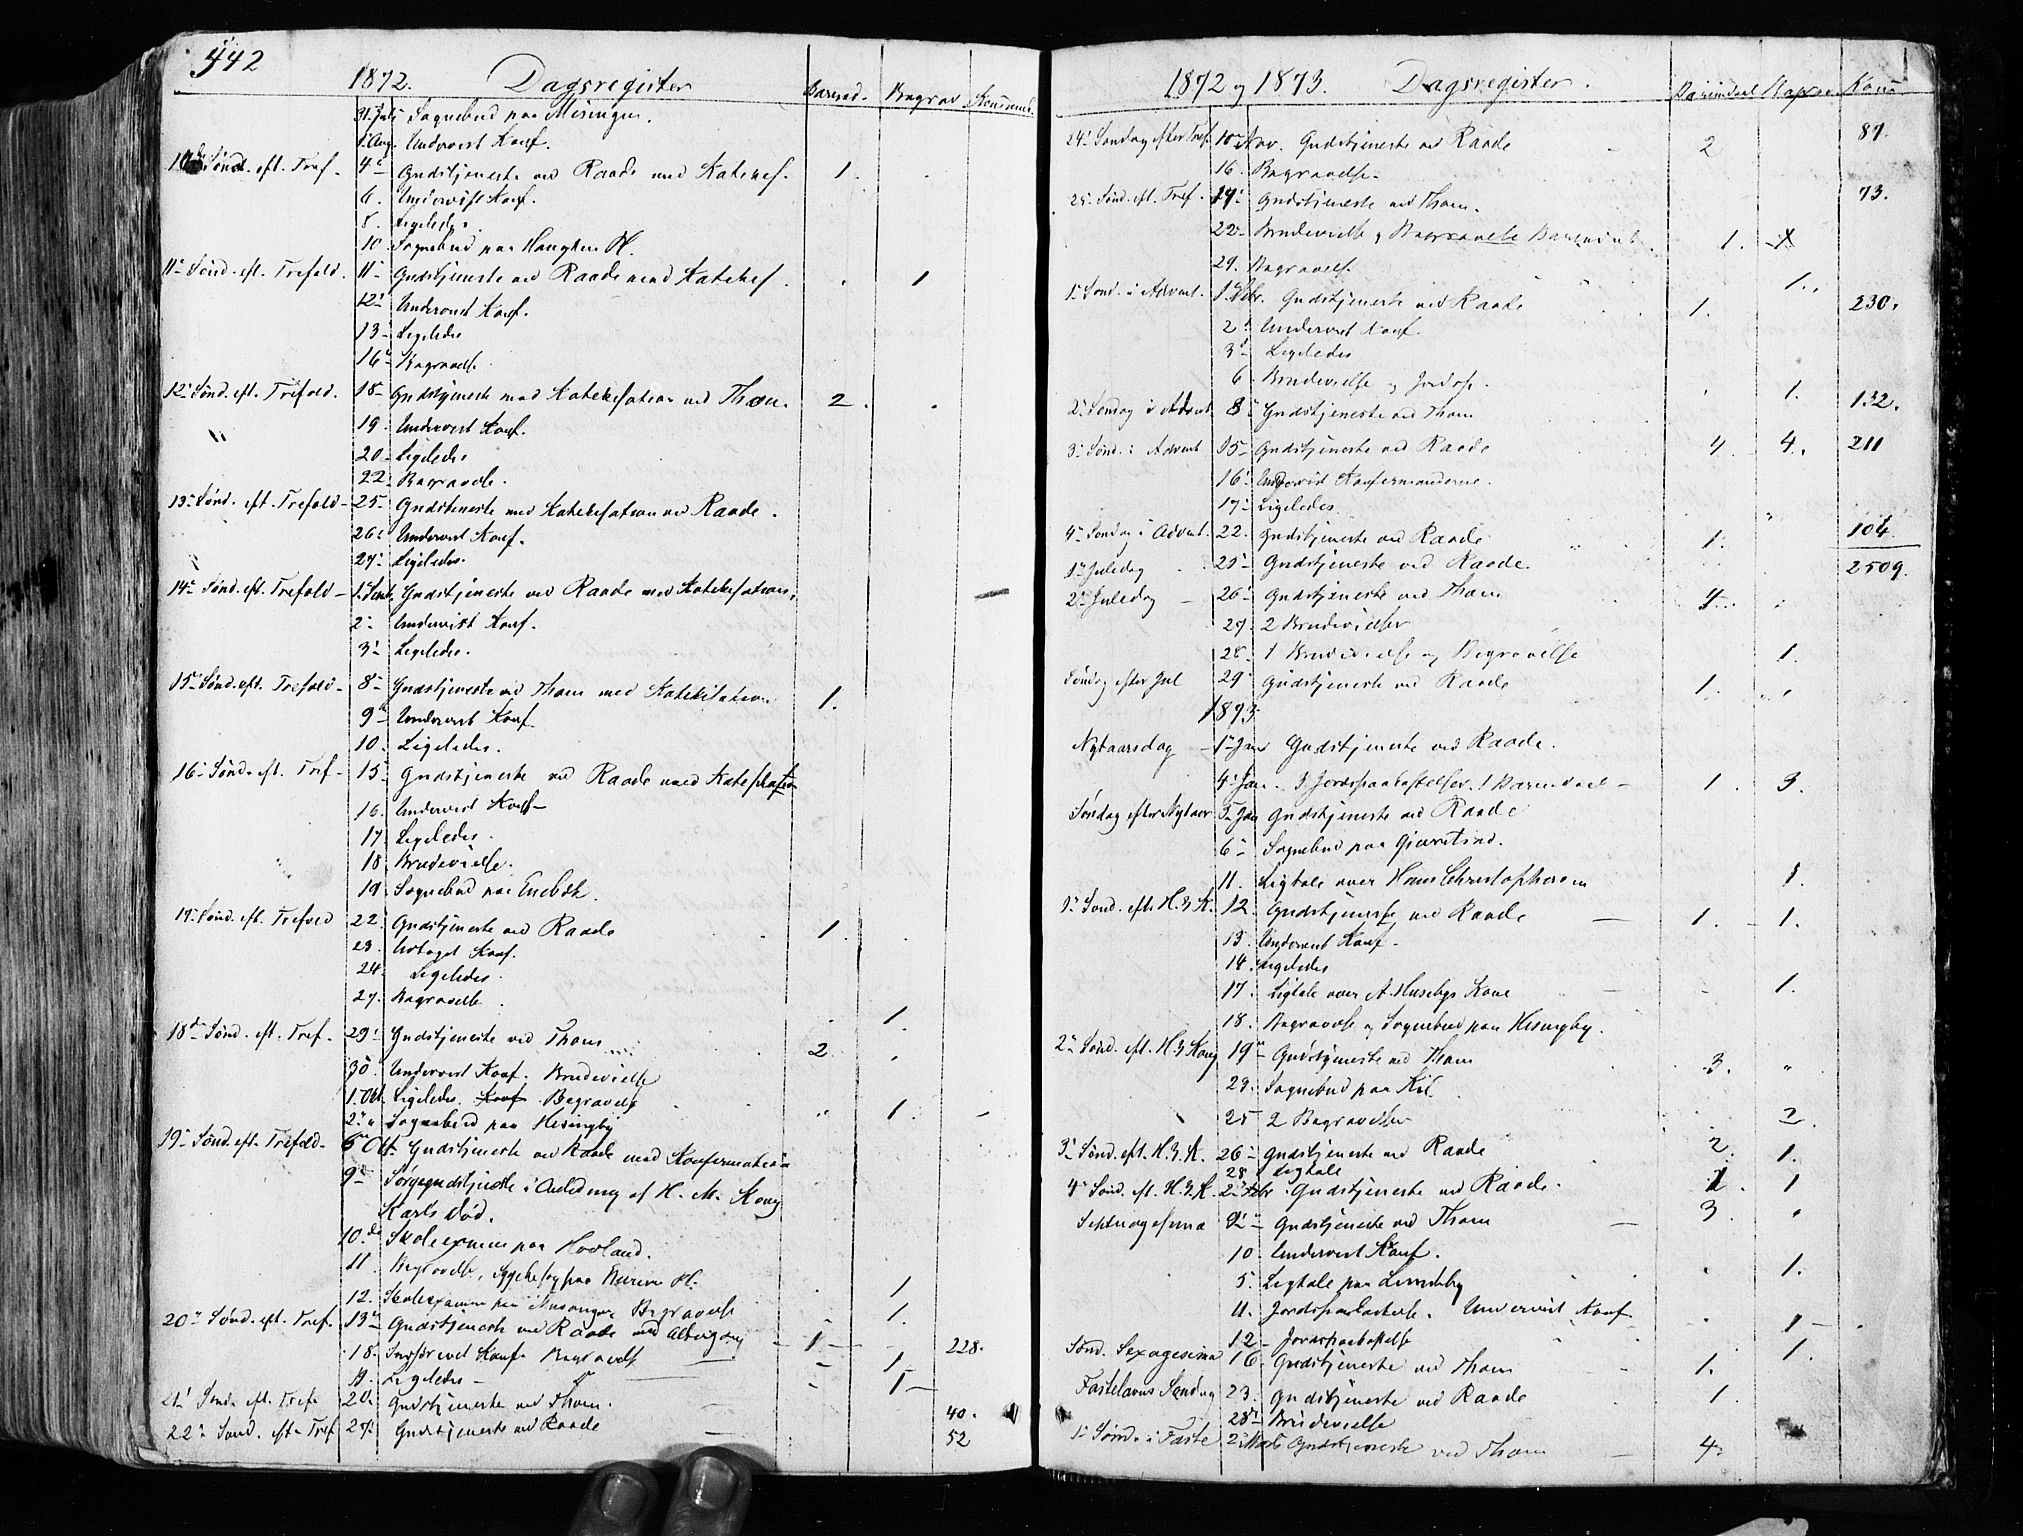 442
1872. Dagsregister Barnd. Begrav. Kommun.
31 Juli Sognebud paa Missingen.
1 Aug. Undervist Konf.
10de Sønd. eft. Tref. 4de Gudstjeneste ved Raade med Katekes. 1.
6. Undervist Konf.
8. Ligeledes.
10. Sognebud paa
11te Sønd. eft. Trefold. 11te Gudstjeneste ved Raade med Katekes. 1
12te Undervist Konf.
13 Ligeledes
16 Begravelse
12te Sønd. eft. Trefold. 18 Gudstjeneste med Katekisation ved Thom. 2.
19. Undervist Konf.
20 Ligeledes
22 Begravelse.
13 Sønd. eft. Trefold 25 Gudstjeneste med Katekisation ved Raade.
26 Undervist Konf.
27 Ligeledes.
14 Sønd. eft. Trefold 1 Sept. Gudstjeneste ved Raade med Katekisation.
2 Undervist Konf.
3 Ligeledes.
15 Sønd. eft. Trefold 8 Gudstjeneste ved Thom med Katekisation 1.
9 Undervist Konf.
10. Ligeledes.
16 Sønd. eft. Tref. 15. Gudstjeneste ved Raade med Katekisation
16. Undervist Konf
17. Ligeledes.
18 Brudevielse.
19. Sognebud paa
17 Sønd. eft. Trefold 22. Gudstjeneste ved Raade 1.
23. Konf.
24. Ligeledes.
27. Begravelse 1.
18de Sønd. eft. Tref. 29. Gudstjeneste ved Thom 2
30. Undervist Konf. Brudevielse
1. Okt. Ligeledes. Konf. Begravelse 1.
2. Sognebud paa Hesingby
19 Sønd. eft. Trefold. 6 Okt. Gudstjeneste ved Raade med Konfirmation
9 Sørgegudstjeneste i Anledning af H. M. Kong
Karls død.
10. Skoleexamen paa Hovland.
11. Begravelse, 1
12. Skoleexamen paa Begravelse 1.
20 Sønd. eft. Tref. 13 Gudstjeneste ved Raade med Altergang 1 228.
18. Konf. Begravelse 1
19. Ligeledes 1
21 Sønd. eft. Tref. 20. Gudstjeneste ved Thom. 40.
22 Sønd. eft. Tref 27. Gudstjeneste ved Raade 52
1872 og 1873. Dagsregister.
24 Søndag efter Tref. 10 Nov. Gudstjeneste ved Raade 2 87.
16. Begravelse.
25 Sønd. eft. Tref. 17 Gudstjeneste ved Thom. 73.
22 Brudevielse og Begravelse 1. 1
29. Begravelse 1.
1 Sønd. i Advent. 1 Debr. Gudstjeneste ved Raade 1. 230.
2 Undervist Konf.
3 Ligeledes
6. Brudevielse og 1.
2 Søndag i Advent 8 Gudstjeneste ved Thom 132.
3 Sønd. i Advent 15 Gudstjeneste ved Raade 4 4. 211
16. Undervist Konfirmanderne.
17. Ligeledes.
4 Søndag i Advent. 22. Gudstjeneste ved Raade 1. 104
1 Juledag 25 Gudstjeneste ved Raade. 2509.
2 Juledag 26 Gudstjeneste ved Thom
27. 2 Brudevielser
28. 1 Brudevielse og Begravelse 1.
Søndag efter Jul 29 Gudstjeneste ved Raade 1.
1873
Nytaarsdag 1 Jan Gudstjeneste ved Raade.
4 Jan. 3 Jordspaakastelser. 1 1. 3.
Søndag efter Nytaar 5 Jan Gudstjeneste ved Raade
6 Sognebud paa
11. Ligtale over Hans Christophersen 1.
1 Sønd. eft. H. 3 K. 12. Gudstjeneste ved Raade 1. 1.
13. Undervist Konf.
14. Ligeledes
17. Ligtale over A. Husebys Kone 1.
18. Begravelse og Sognebud paa Hesingby.
2 Sønd. eft. H. 3 Kong 19 Gudstjeneste ved Thom 3.
23. Sognebud paa
25 2 Begravelser 2.
3 Sønd. eft. H. 3. K. 26 Gudstjeneste ved Raade 2. 1.
28 Ligtale
4 Sønd. eft. H. 3. K. 2 Febr. Gudstjeneste ved Raade. 1. 1
Septuagesima 9 Gudstjeneste ved Thom 3
10. Undervist Konf.
5. Ligtale paa Lundeby 1.
11. Jordspaakastelse. Undervist Konf 1
12 Jordspaakastelse 1.
Sønd. Sexagesima 16 Gudstjeneste ved Thom 1.
Fastelavns Søndag 23. Gudstjeneste ved Raade 1.
28 Brudevielse
1 Sønd. i Faste 2 Marts Gudstjeneste ved Thom 4